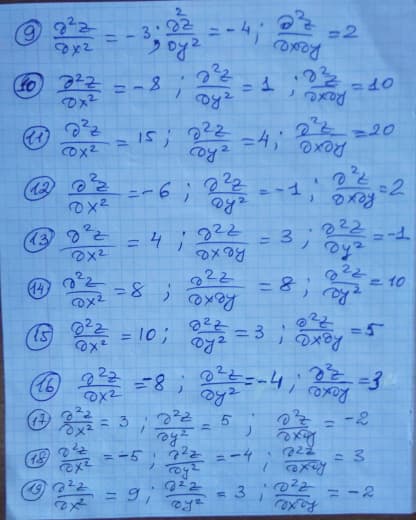 9 ∂²z/∂x² = -3; ∂²z/∂y² = -4; ∂²z/∂x∂y = 2
10 ∂²z/∂x² = -8; ∂²z/∂y² = 1; ∂²z/∂x∂y = 10
11 ∂²z/∂x² = 15; ∂²z/∂y² = 4; ∂²z/∂x∂y = 20
12 ∂²z/∂x² = -6; ∂²z/∂y² = -1; ∂²z/∂x∂y = 2
13 ∂²z/∂x² = 4; ∂²z/∂x∂y = 3; ∂²z/∂y² = -1
14 ∂²z/∂x² = 8; ∂²z/∂x∂y = 8; ∂²z/∂y² = 10
15 ∂²z/∂x² = 10; ∂²z/∂y² = 3; ∂²z/∂x∂y = 5
16 ∂²z/∂x² = -8; ∂²z/∂y² = -4; ∂²z/∂x∂y = 3
17 ∂²z/∂x² = 3; ∂²z/∂y² = 5; ∂²z/∂x∂y = -2
18 ∂²z/∂x² = -5; ∂²z/∂y² = -4; ∂²z/∂x∂y = 3
19 ∂²z/∂x² = 9; ∂²z/∂y² = 3; ∂²z/∂x∂y = -2